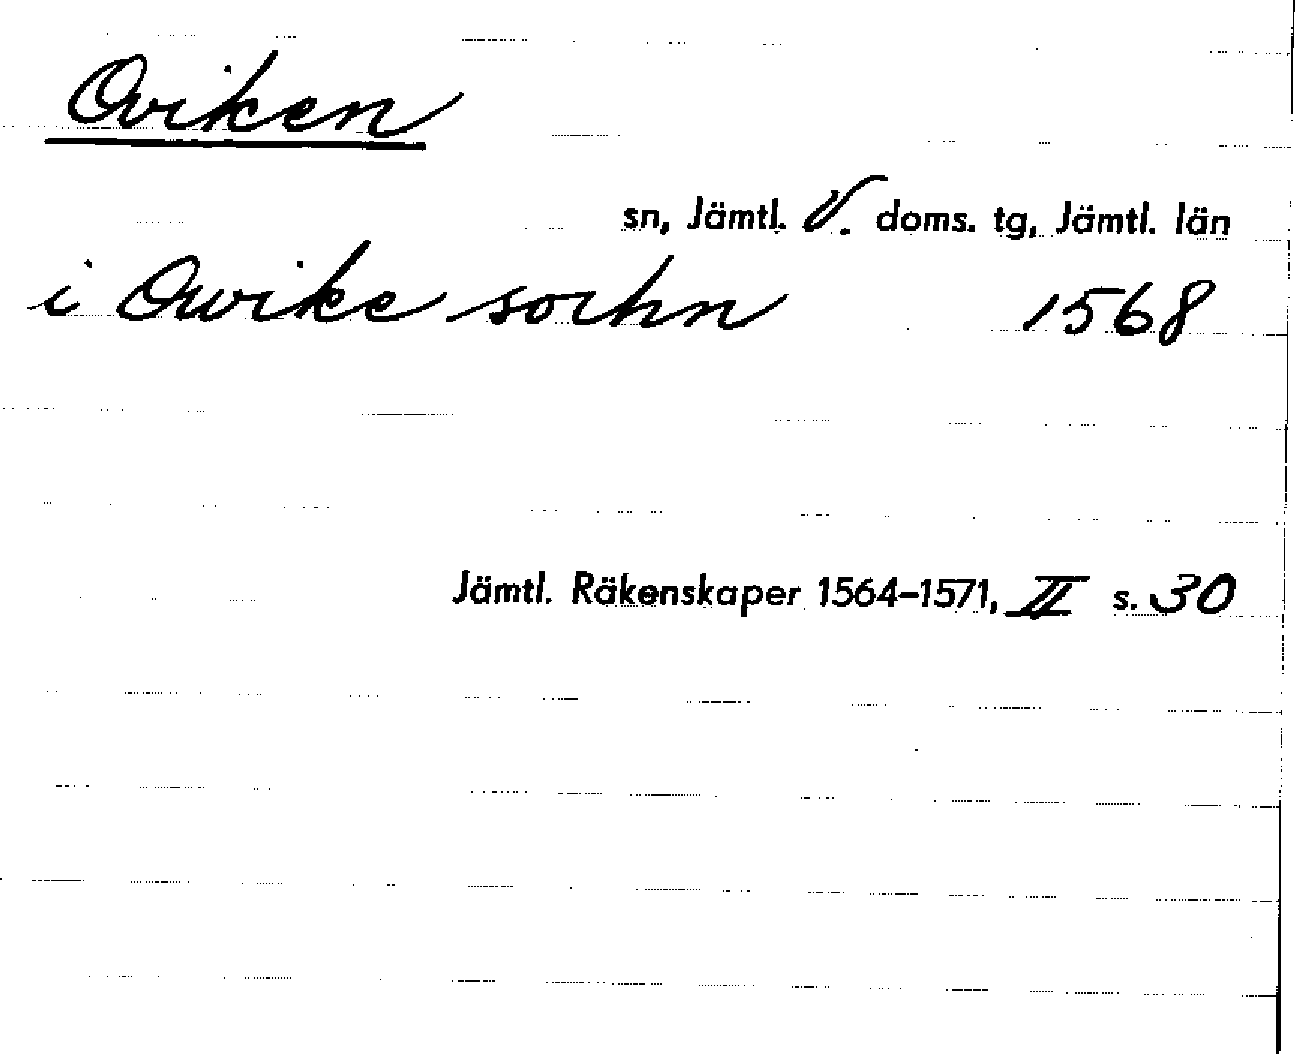 Oviken
sn, Jämtl. V. doms. tg, Jämtl. län
i Owike sockn 1568
Jämtl. Räkenskaper 1564–1571, II s. 30